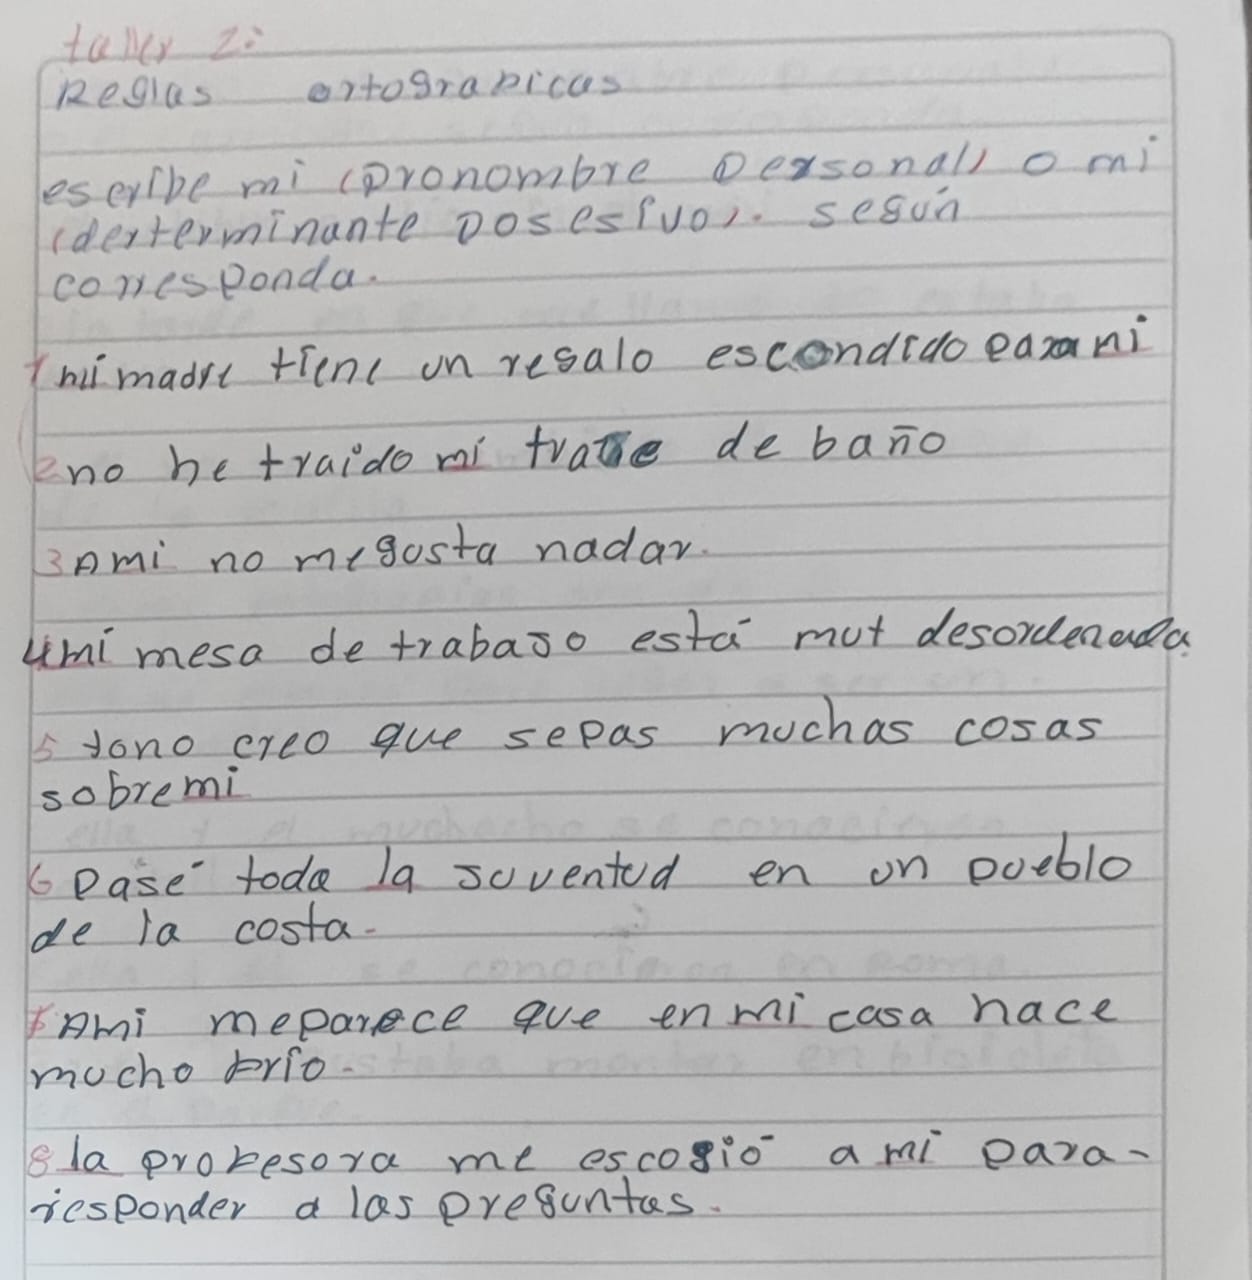 taller 2:
Reglas ortograpicas
escribe mi (pronombre personal) o mi
(derterminante posesivo). según
corresponda.
1 mi madre tiene un regalo escondido para mi
2 no he traído mi traje de baño
3 Ami no me gusta nadar.
4 mi mesa de trabajo está mut desordenada.
5 yono creo que sepas muchas cosas
sobre mi
6 Pasé toda la juventud en un pueblo
de la costa.
7 Ami meparece que en mi casa hace
mucho frío.
8 la profesora me escogió a mi para-
responder a las preguntas.